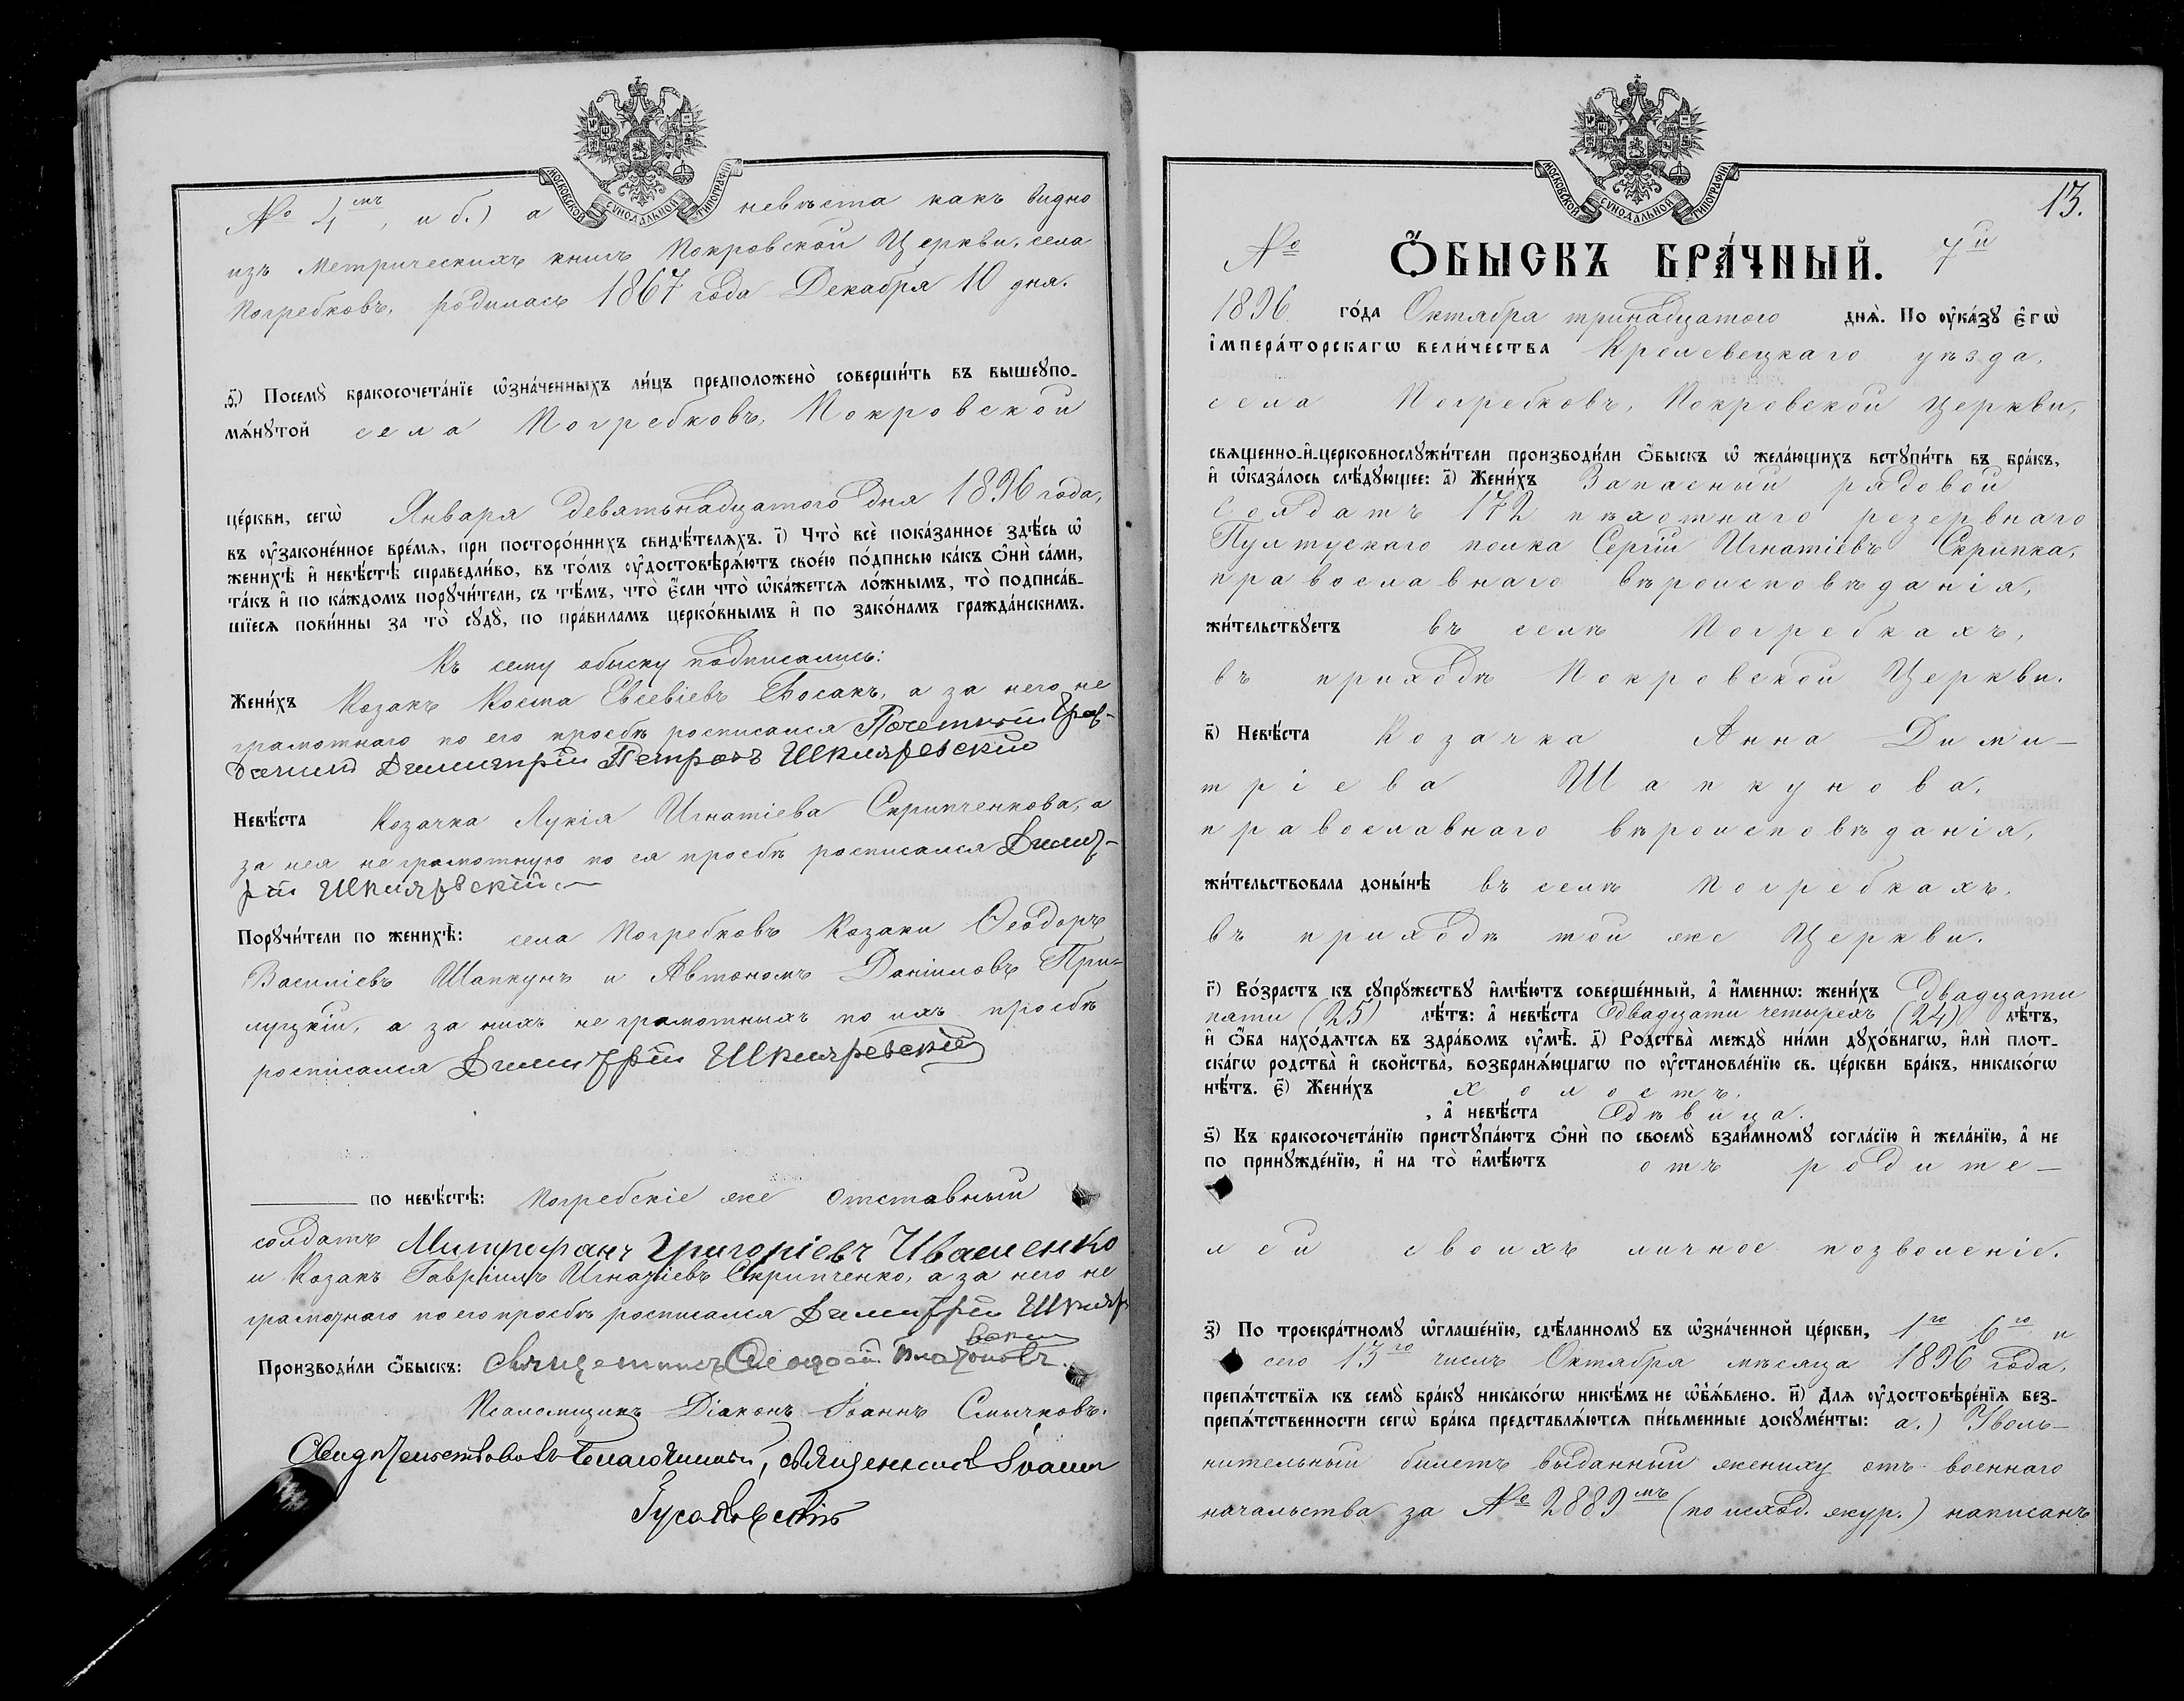 МОСКОВСКОЙ СѴНОДАЛЬНОЙ ТИПОГРАФІИ
№ 4мъ, и б.) а невѣста какъ видно
изъ Метрическихъ книгъ Покровской Церкви, села
Погребковъ, родилась 1867 года Декабря 10 дня.
ѳ҃) Посемꙋ̀ бракосочета́нїе ѡ҆зна́ченныхъ ли́цъ предположено̀ соверши́ть въ вышеꙋпо-
мѧ́нꙋтой села Погребковъ, Покровской
це́ркви, сегѡ̀ Января девятьнадцатого дня 1896 года,
въ ᲂу҆законе́нное вре́мѧ, при посторо́ннихъ свидѣ́телѧхъ. і҃) Что̀ всѐ пока́занное здѣ́сь ѡ҆
женихѣ̀ и҆ невѣ́стѣ справедли́во, въ то́мъ ᲂу҆достовѣрѧ́ютъ свое́ю по́дписью ка́къ ѻ҆нѝ са́ми,
та́къ и҆ по ка́ждомъ порꙋчи́тели, съ тѣ́мъ, что̀ є҆́сли что̀ ѡ҆ка́жетсѧ ло́жнымъ, то̀ подписа́в-
шїесѧ пови́нны за то̀ сꙋдꙋ̀, по пра́виламъ церко́внымъ и҆ по зако́намъ гражда́нскимъ.
Къ сему обыску подписались:
Жени́хъ Козакъ Косма Евсевіевъ Босакъ, а за него не
грамотнаго по его просьбѣ росписался Почетный Граж-
данинъ Димитрій Петровъ Шкляревскій
Невѣ́ста Козачка Лукія Игнатіева Скрипченкова, а
за нея не грамотную по ея просьбѣ росписался Димит-
рій Шкляревскій
Порꙋчи́тели по женихѣ̀: села Погребковъ Козаки Ѳеодоръ
Василіевъ Шапкунъ и Автономъ Даніиловъ При-
луцкій, а за нихъ не грамотныхъ по ихъ просьбѣ
росписался Димитрій Шкляревскій
по невѣ́стѣ: Погребскіе же отставный
солдатъ Митрофанъ Григоріевъ Иващенко
и Козакъ Гавріилъ Игнатіевъ Скрипченко, а за него не
грамотнаго по его просьбѣ росписался Димитрій Шкляр
вскій
Производи́ли ѻ҆́быскъ: Священникъ Ѳеодосій Платоновъ.
Псаломщикъ Діаконъ Іоаннъ Смычковъ.
Свидѣтельствовалъ Благочинный, священникъ Іоаннъ
13.
МОСКОВСКОЙ СѴНОДАЛЬНОЙ ТИПОГРАФІИ
№ Ѻ҆́БЫСКЪ БРА́ЧНЫЙ. 7й
1896 го́да Октября тринадцатого днѧ̀. По ᲂу҆ка́зꙋ є҆гѡ̀
і҆мпера́торскагѡ вели́чества Кролевецкаго уѣзда,
села Погребковъ, Покровской Церкви,
свѧщенно-и҆-церковнослꙋжи́тели производи́ли ѻ҆́быскъ ѡ҆ жела́ющихъ встꙋпи́ть въ бра́къ,
и҆ ѡ҆каза́лось слѣ́дꙋющее: а҃) Жени́хъ Запасный рядовой
Солдатъ 172 пѣхотнаго резервнаго
Пултускаго полка Сергій Игнатіевъ Скрипка,
православнаго вѣроисповѣданія,
жи́тельствꙋетъ въ селѣ Погребкахъ,
въ приходѣ Покровской Церкви.
в҃) Невѣ́ста Козачка Анна Дими-
тріева Шапкунова,
православнаго вѣроисповѣданія,
жи́тельствовала доны́нѣ въ селѣ Погребкахъ,
въ приходѣ той же Церкви.
г҃) Во́зрастъ къ сꙋпрꙋ́жествꙋ и҆мѣ́ютъ соверше́нный, а҆ и҆́меннѡ: жени́хъ двадцати
пяти (25) лѣ́тъ: а҆ невѣ́ста двадцати четырехъ (24) лѣ́тъ,
и҆ ѻ҆́ба нахо́дѧтсѧ въ здра́вомъ ᲂу҆мѣ̀. д҃) Родства̀ междꙋ̀ ни́ми дꙋхо́внагѡ, и҆лѝ плот-
ска́гѡ родства̀ и҆ свойства̀, возбранѧ́ющагѡ по ᲂу҆становле́нїю св. це́ркви бра́къ, никако́гѡ
нѣ́тъ. є҃) Жени́хъ холостъ,
, а҆ невѣ́ста дѣвица.
ѕ҃) Къ бракосочета́нїю пристꙋпа́ютъ ѻ҆нѝ по своемꙋ̀ взаи́мномꙋ согла́сїю и҆ жела́нїю, а҆ не
по принꙋжде́нїю, и҆ на то̀ и҆мѣ́ютъ отъ родите-
лей своихъ личное позволеніе.
з҃) По троекра́тномꙋ ѡ҆глаше́нїю, сдѣ́ланномꙋ въ ѡ҆зна́ченной це́ркви, 1го 6го и
сего 13го числъ Октября мѣсяца 1896 года,
препѧ́тствїѧ къ семꙋ̀ бра́кꙋ никако́гѡ никѣ́мъ не ѡ҆б̾ѧ́влено. и҃) Длѧ ᲂу҆достовѣре́нїѧ без-
препѧ́тственности сегѡ̀ бра́ка представлѧ́ютсѧ пи́сьменные докꙋме́нты: а.) Уволь-
нительный билетъ выданный жениху отъ военнаго
начальства за № 2889мъ (по исход. жур.) написанъ